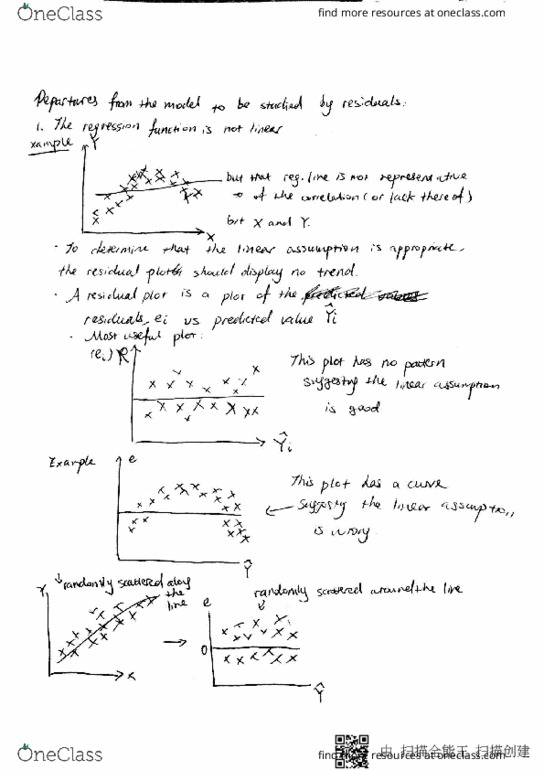 OneClass
find more resources at oneclass.com
Departures from the model to be studied by residuals:
1. The regression function is not linear
xample
Y
but that reg. line is not representative
of the correlation (or lack thereof)
bit X and Y.
X
· To determine that the linear assumption is appropriate,
the residual plots should display no trend.
· A residual plot is a plot of the
residuals, ei vs predicted value Ŷi
· Most useful plot:
(ei)
This plot has no pattern
suggesting the linear assumption
is good
Ŷi
Example
e
This plot has a curve
suggesting the linear assumption
is wrong
Ŷ
Y
randomly scattered along
the
line
X
randomly scattered around the line
e
0
Ŷ
OneClass
find more resources at oneclass.com
扫描全能王 扫描创建